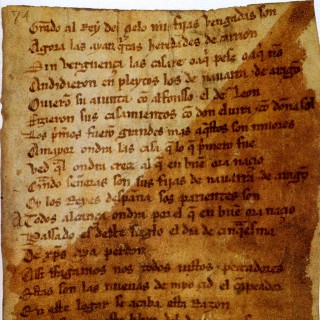 Grado al Rey del çielo mis fijas vengadas son
Agora las ayan q̃tas heredades de carrion
Sin verguença las casare o aq̃ pese o aq̃ nõ
Andidieron en pleytos los de nauarra & de aragõ
Ouierõ su aiunta cõ alfonsso el de Leon
Fizieron sus casamientos cõ don eluira & cõ doña sol
Los p̃mos fuerõ grandes mas aq̃stos son miiores
A mayor ondra las casa q̃ lo q̃ p̃mero fue
Ved q̃l ondra creçe al q̃ en buẽ ora naçio
Quãdo señoras son sus fijas de nauarra & de aragõ
Oy los Reyes despaña sos parientes son
A todos alcança ondra por el q̃ en buẽ ora naçio
Passado es deste sieglo el dia de cinq̃esma
De xp̃s aya perdon
Assi ffagamos nos todos iustos & peccadores
Estas son las nueuas de myo çid el canpeador
En este logar se acaba esta Razon